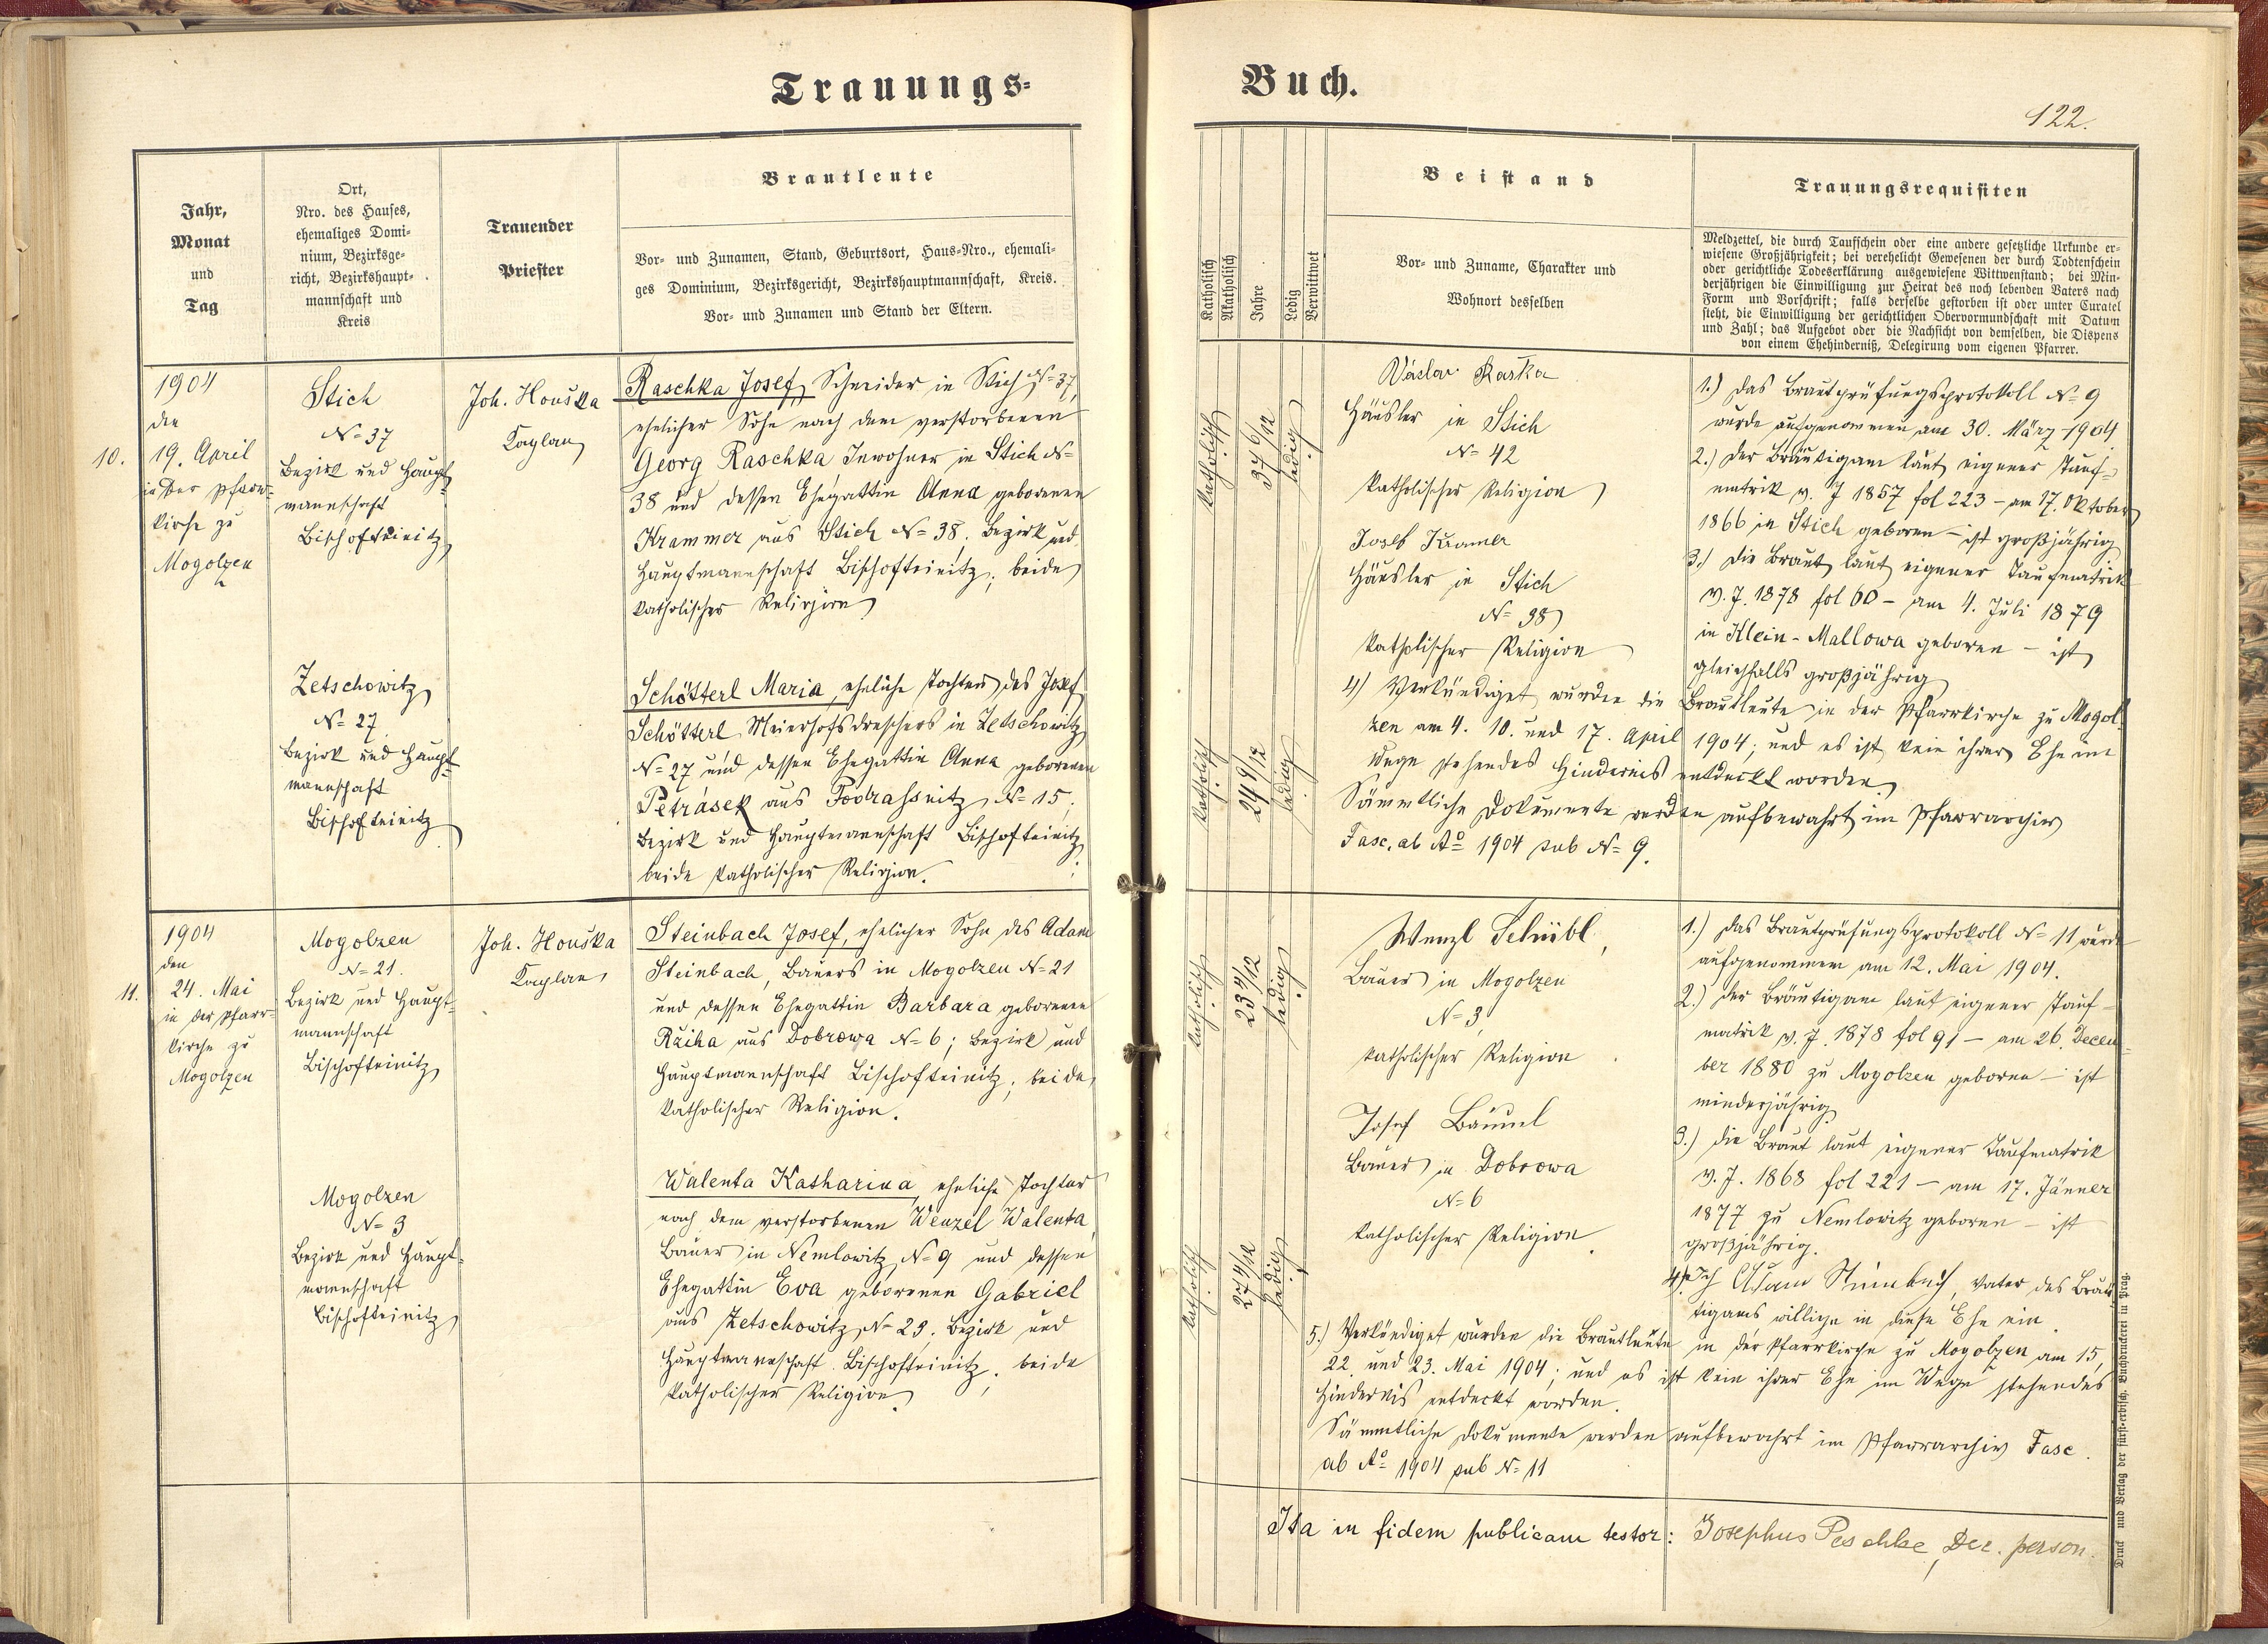 Trauungs-
Buch.
122.
Jahr,
Monat
und
Tag
Ort,
Nro. des Hauses,
ehemaliges Domi-
nium, Bezirksge-
richt, Bezirkshaupt-
mannschaft und
Kreis
Trauender
Priester
Brautleute
Vor- und Zunamen, Stand, Geburtsort, Haus-Nro., ehemali-
ges Dominium, Bezirksgericht, Bezirkshauptmannschaft, Kreis.
Vor- und Zunamen und Stand der Eltern.
Katholisch
Akatholisch
Jahre
Ledig
Verwittwet
Beistand
Vor- und Zuname, Charakter und
Wohnort desselben
Trauungsrequisiten
Meldzettel, die durch Taufschein oder eine andere gesetzliche Urkunde er-
wiesene Großjährigkeit; bei verehelicht Gewesenen der durch Todtenschein
oder gerichtliche Todeserklärung ausgewiesene Wittwenstand; bei Min-
derjährigen die Einwilligung zur Heirat des noch lebenden Vaters nach
Form und Vorschrift; falls derselbe gestorben ist oder unter Curatel
steht, die Einwilligung der gerichtlichen Obervormundschaft mit Datum
und Zahl; das Aufgebot oder die Nachsicht von demselben, die Dispens
von einem Ehehinderniß, Delegirung vom eigenen Pfarrer.
10.
1904
den
19. April
in der Pfarr-
kirche zu
Mogolzen
Stich
N= 37
Bezirk und Haupt-
mannschaft
Bischofteinitz
Joh. Houška
Kaplan
Raschka Josef, Schneider in Stich N= 37,
ehelicher Sohn nach dem verstorbenen
Georg Raschka Inwohner in Stich N=
38 und dessen Ehegattin Anna geborenen
Krammer aus Stich N= 38. Bezirk und
Hauptmannschaft Bischofteinitz; beide
katholischer Religion
Zetschowitz
N= 27
Bezirk und Haupt-
mannschaft
Bischofteinitz
Schötterl Maria, eheliche Tochter des Josef
Schötterl Meierhofsdreschers in Zetschowitz
N= 27 und dessen Ehegattin Anna geborenen
Petrásek aus Podrassnitz N= 15;
Bezirk und Hauptmannschaft Bischofteinitz;
beide katholischer Religion.
katholisch
37 6/12
ledig
katholisch
24 9/12
ledig
Václav Raška
Häusler in Stich
N= 42
katholischer Religion
Josef Kramer
Häusler in Stich
N= 38
katholischer Religion
1.) Das Brautprüfungsprotokoll N= 9
wurde aufgenommen am 30. März 1904
2.) Der Bräutigam laut eigener Tauf-
matrik v. J 1857 fol 223 - am 17. Oktober
1866 in Stich geboren - ist großjährig
3.) Die Braut laut eigener Taufmatrik
v. J. 1878 fol 60 - am 4. Juli 1879
in Klein-Mallowa geboren - ist
gleichfalls großjährig
4.) Verkündiget wurden die Brautleute in der Pfarrkirche zu Mogol-
zen am 4. 10. und 17. April 1904; und es ist kein ihrer Ehe im
Wege stehendes Hindernis entdeckt worden.
Sämmtliche Dokumente werden aufbewahrt im Pfarrarchiv
Fasc. ab Ao 1904 sub N= 9.
11.
1904
den
24. Mai
in der Pfarr-
kirche zu
Mogolzen
Mogolzen
N= 21.
Bezirk und Haupt-
mannschaft
Bischofteinitz
Joh. Houška
Kaplan
Steinbach Josef, ehelicher Sohn des Adam
Steinbach, Bauers in Mogolzen N= 21
und dessen Ehegattin Barbara geborenen
Růiha aus Dobrowa N= 6; Bezirk und
Hauptmannschaft Bischofteinitz; beide
katholischer Religion.
Mogolzen
N= 3
Bezirk und Haupt-
mannschaft
Bischofteinitz
Walenta Katharina, eheliche Tochter
nach dem verstorbenen Wenzel Walenta,
Bauer in Nemlowitz N= 9 und dessen
Ehegattin Eva geborenen Gabriel
aus Zetschowitz N= 23. Bezirk und
Hauptmannschaft Bischofteinitz; beide
katholischer Religion.
katholisch
23 4/12
ledig
katholisch
27 4/12
ledig
Wenzl Schübl,
Bauer in Mogolzen
N= 3
katholischer Religion
Josef Bäuml
Bauer in Dobrowa
N= 6
katholischer Religion.
1.) Das Brautprüfungsprotokoll N= 11 wurde
aufgenommen am 12. Mai 1904.
2.) Der Bräutigam laut eigener Tauf-
matrik v. J. 1878 fol 91 - am 26. Decem-
ber 1880 zu Mogolzen geboren - ist
minderjährig
3.) Die Braut laut eigener Taufmatrik
v. J. 1868 fol 221 - am 17. Jänner
1877 zu Nemlowitz geboren - ist
großjährig.
4.) Ich Adam Steinbach, Vater des Bräu-
tigams willige in diese Ehe ein.
5.) Verkündiget wurden die Brautleute in der Pfarrkirche zu Mogolzen am 15,
22. und 23. Mai 1904; und es ist kein ihrer Ehe im Wege stehendes
Hindernis entdeckt worden.
Sämmtliche Dokumente werden aufbewahrt im Pfarrarchiv Fasc.
ab Ao 1904 sub N= 11
Ita in fidem publicam testor: Josephus Peschke, Dec. person.
Druck und Verlag der fürst-erzbisch. Buchdruckerei in Prag.